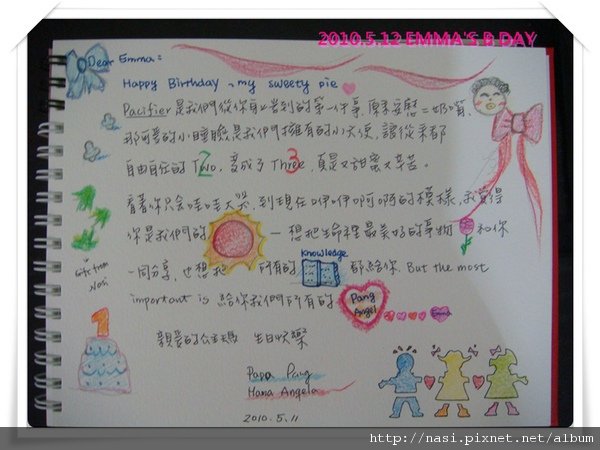 2010.5.12 EMMA'S B-DAY
Dear Emma:
Happy Birthday, my sweety pie
Pacifier 是我們從你身上學到的第一件事,原來安慰=奶嘴,
那可愛的小 是我們擁有的小天使,讓從來都
自由自在的 Two,變成了 Three,真是又甜蜜又辛苦。
看著你只會哇哇大哭,到現在咿咿啊啊的模樣,我覺得
你是我們的 一想把生命裡最美好的事物 和你
Knowledge
一同分享,也想把 所有的 都給你. But the most
important is 給你我們所有的 Pang Angel Emma
Gift from Nasi
親愛的 生日快樂
1
Papa Pang
Mama Angela
2010.5.11
http://nasi.pixnet.net/album